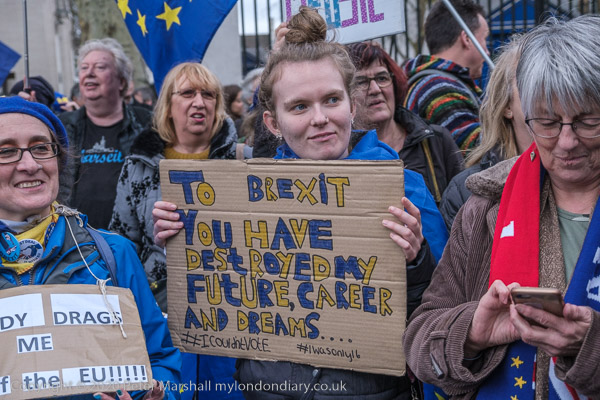 TO BREXIT
YOU HAVE
DESTROYED MY
FUTURE, CAREER
AND DREAMS....
#ICOULDNTVOTE #IWASONLY16
DY DRAGS
ME
f the EU!!!!!
Marshall mylondondiary.co.uk